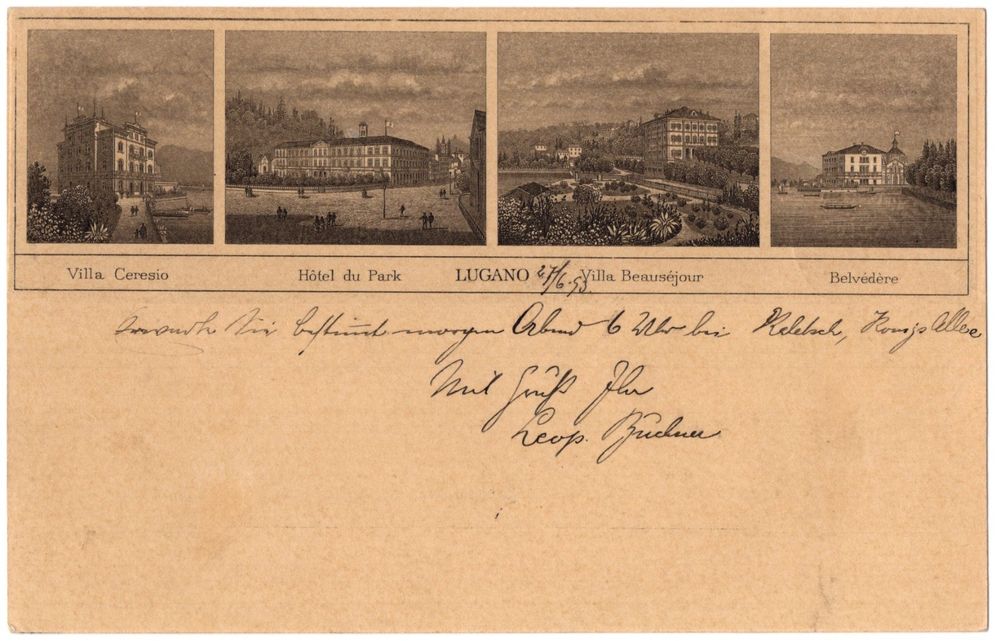 Villa Ceresio Hôtel du Park LUGANO 27/6.93. Villa Beauséjour Belvédère
erwarte Sie bestimmt morgen Abend 6 Uhr bei Königs Allee
Mit Gruß Ihr
Leop. Büchner